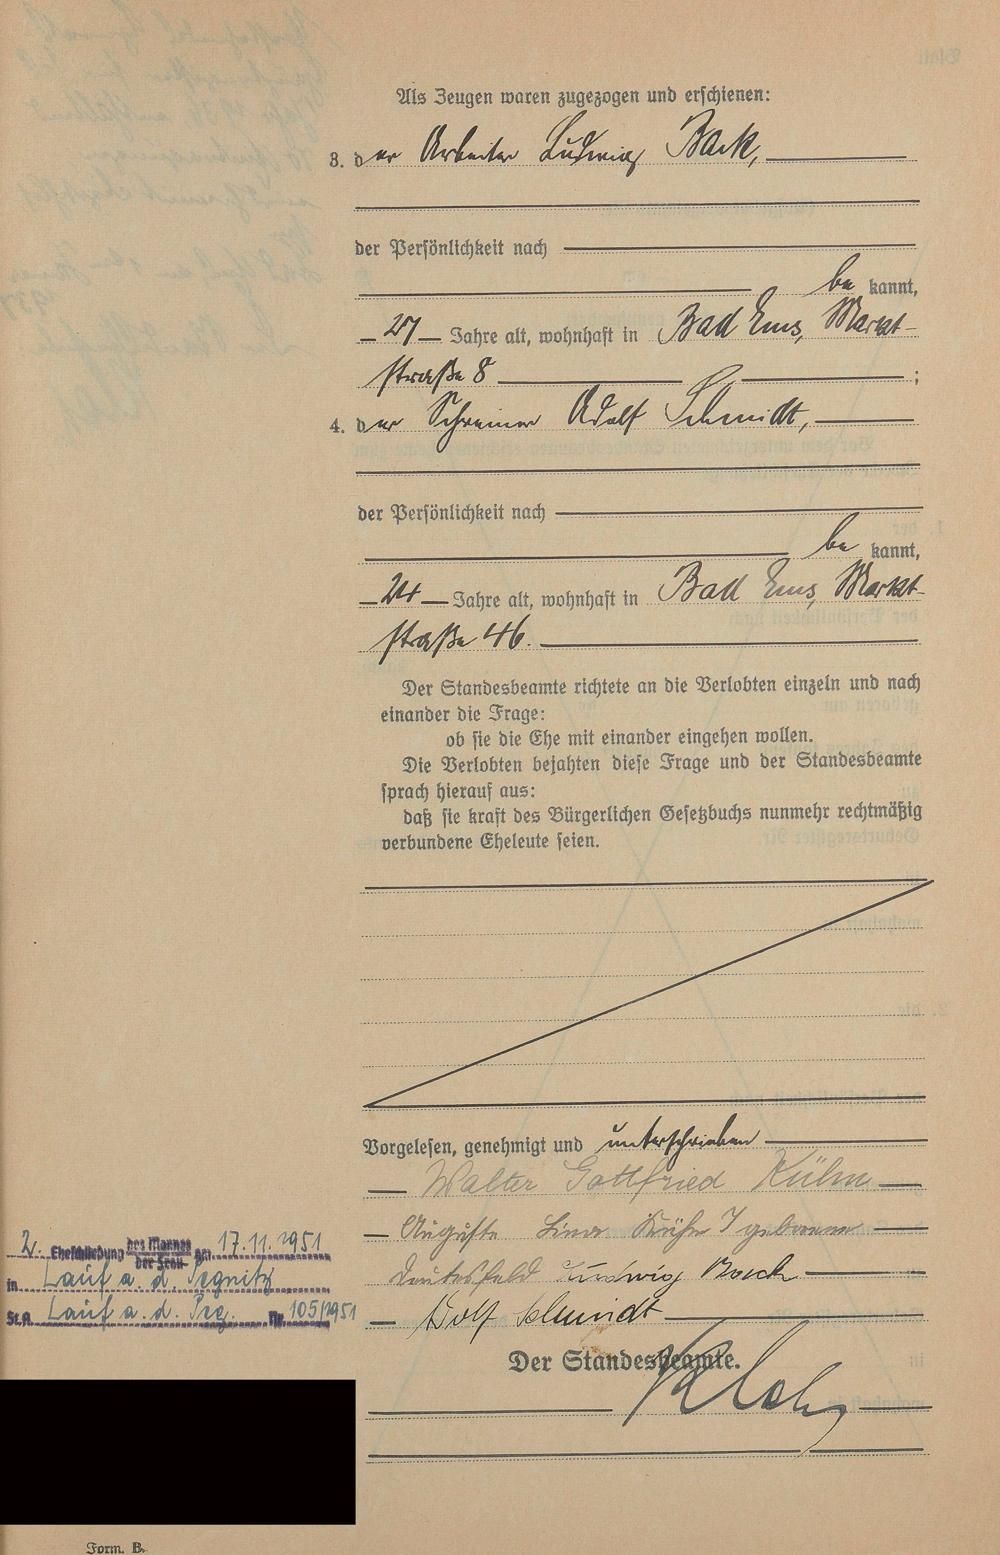 Als Zeugen waren zugezogen und erschienen:
3. der Arbeiter Ludwig Back,
der Persönlichkeit nach
be kannt,
27 Jahre alt, wohnhaft in Bad Ems, Markt-
straße 8 ;
4. der Schreiner Adolf Schmidt,
der Persönlichkeit nach
be kannt,
24 Jahre alt, wohnhaft in Bad Ems, Markt-
straße 46.
Der Standesbeamte richtete an die Verlobten einzeln und nach
einander die Frage:
ob sie die Ehe mit einander eingehen wollen.
Die Verlobten bejahten diese Frage und der Standesbeamte
sprach hierauf aus:
daß sie kraft des Bürgerlichen Gesetzbuchs nunmehr rechtmäßig
verbundene Eheleute seien.
Vorgelesen, genehmigt und unterschrieben
Walter Gottfried Kühn
Auguste Lina Kühn geborene
Ludwig
Adolf Schmidt
Der Standesbeamte.
2. Eheschließung des Mannes der Frau am 17.11.1951
in Lauf a. d. Pegnitz
St.A. Lauf a. d. Peg. Nr. 105/1951
Form. B.